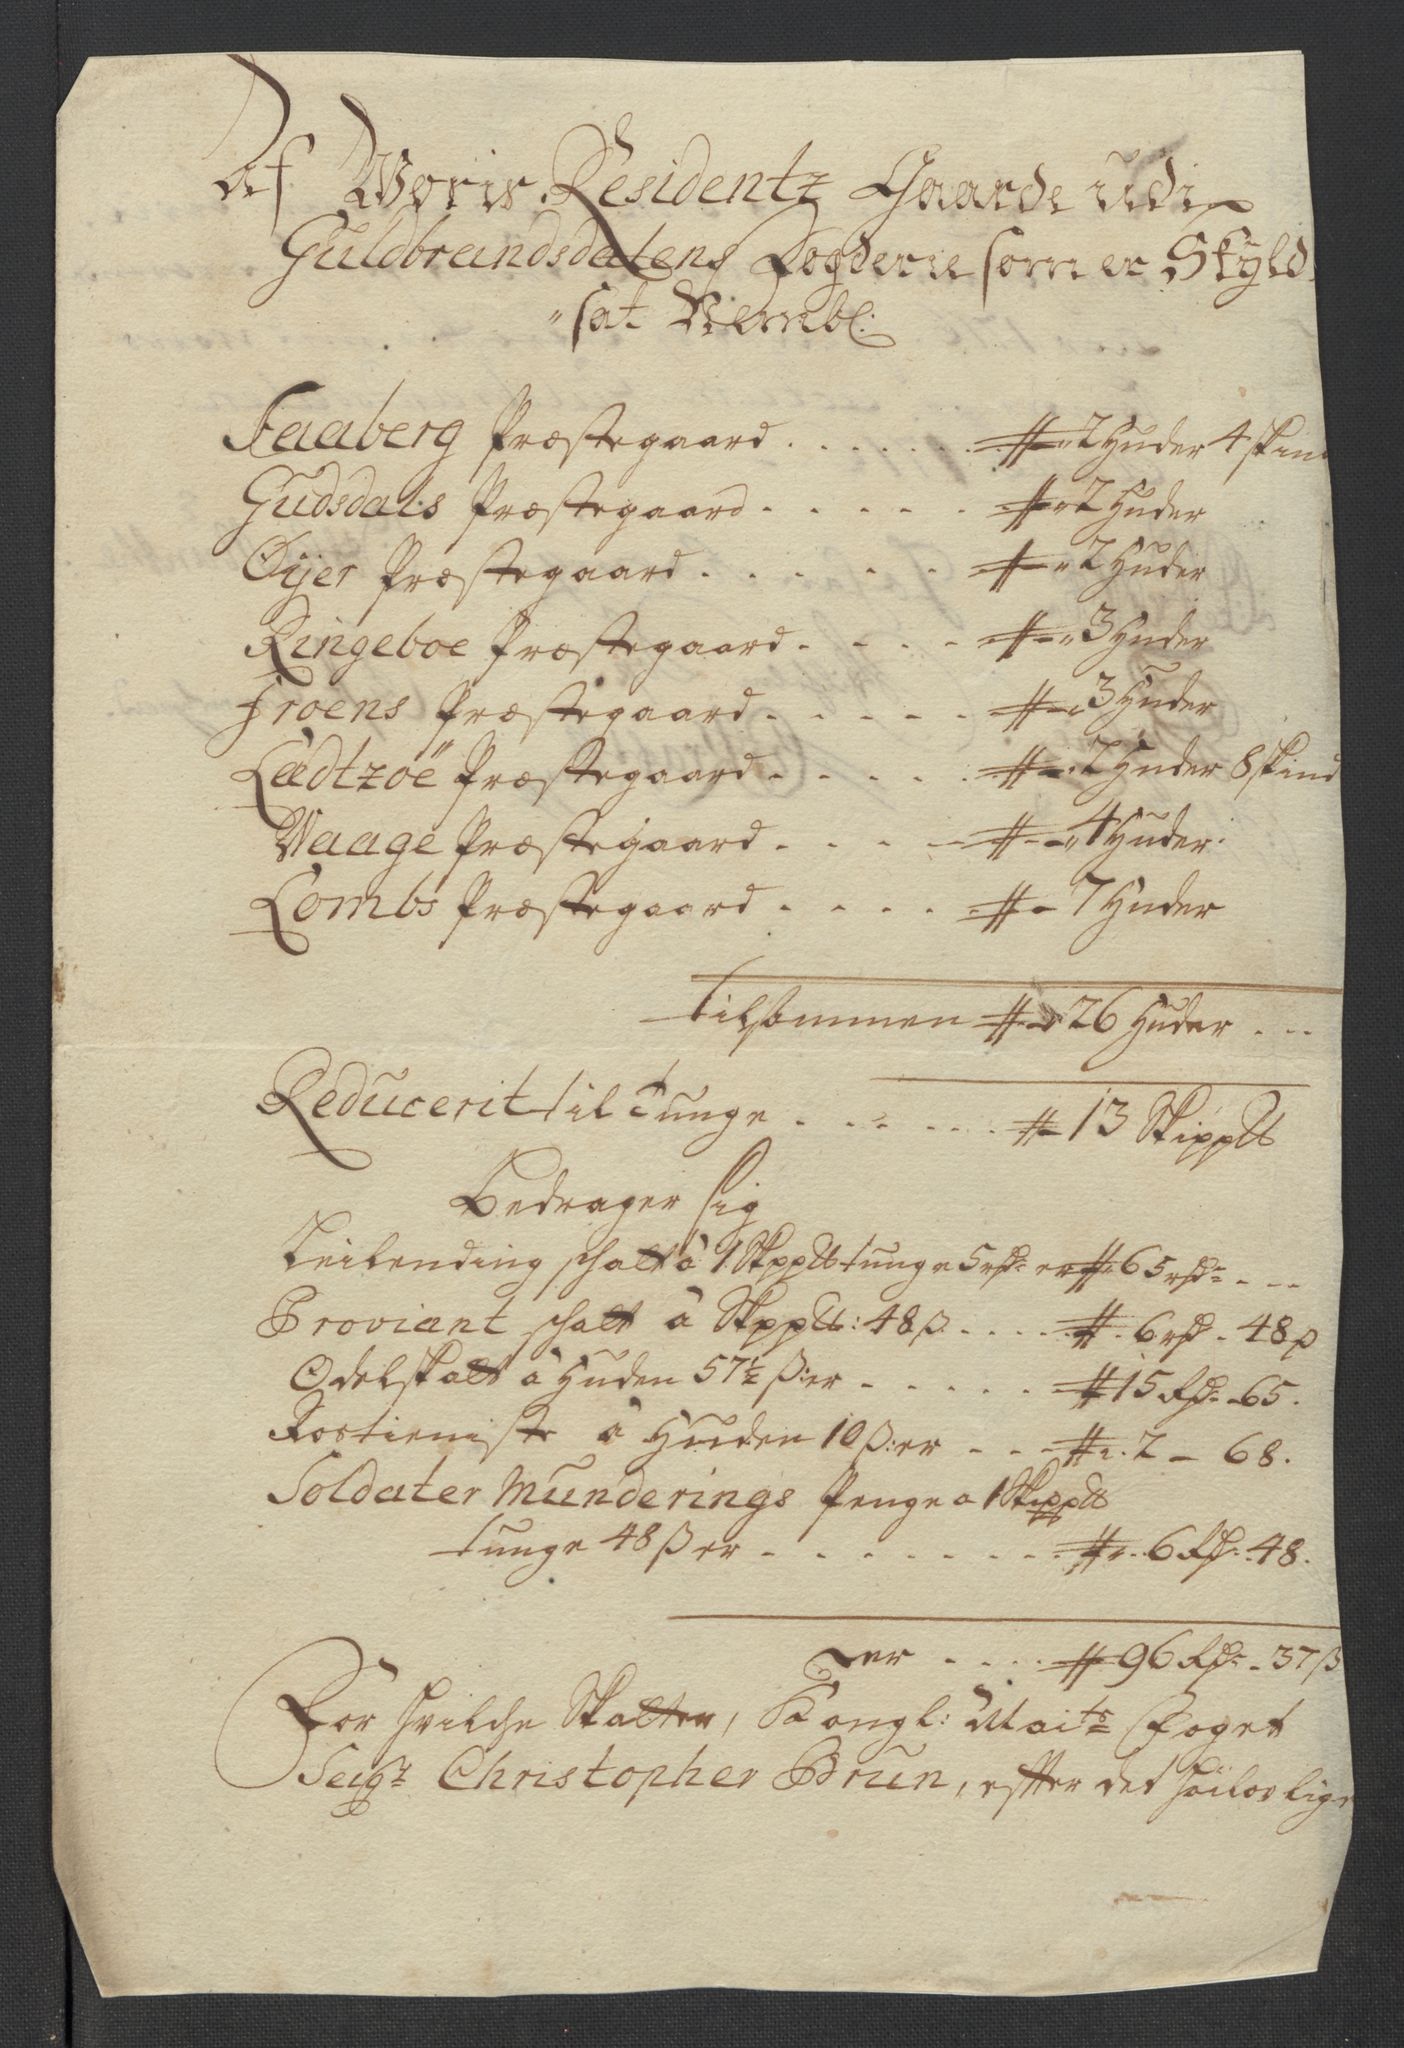 Af Woris Residentz Gaarde udi
Guldbrandsdalens Fogderie som er Skÿld
sat Nembl:
Faaberg Præstegaard . . . . . . # 2 Huder 4 skind
Gudsdals Præstegaard . . . . . # 2 Huder
Øÿer Præstegaard . . . . . . # 2 Huder
Ringeboe Præstegaard . . . . # 3 Huder
Froens Præstegaard . . . . . # 3 Huder
Lædtzöe Præstegaard . . . . . # 2 Huder 8 skind
Waage Præstegaard . . . . # 4 Huder
Lombs Præstegaard . . . . . # 7 Huder
tilsammen # 26 Huder . . .
Reducerit til Tunge . . . . . . # 13 Skippd
Bedrager sig
Leilending schatt á 1 Skppd tunge 5 rdr er # 65 rdr . . .
Proviant schatt á Skppd: 48 ß . . . . . # 6 rdr - 48 ß
Odelskatt á Huden 57½ ß: er . . . . . # 15 Rdr - 65.
Rostieniste á Huden 10 ß: er . . . # 2 - 68.
Soldater Munderings Penge a 1 Skippd
tunge 48 ß er . . . . . . . . # 6 Rdr - 48.
er . . . . # 96 Rdr - 37 ß
For hvilche Skatter, Kongl: Maits Foget
Seigr Christopher Brun, effter det höilovlige